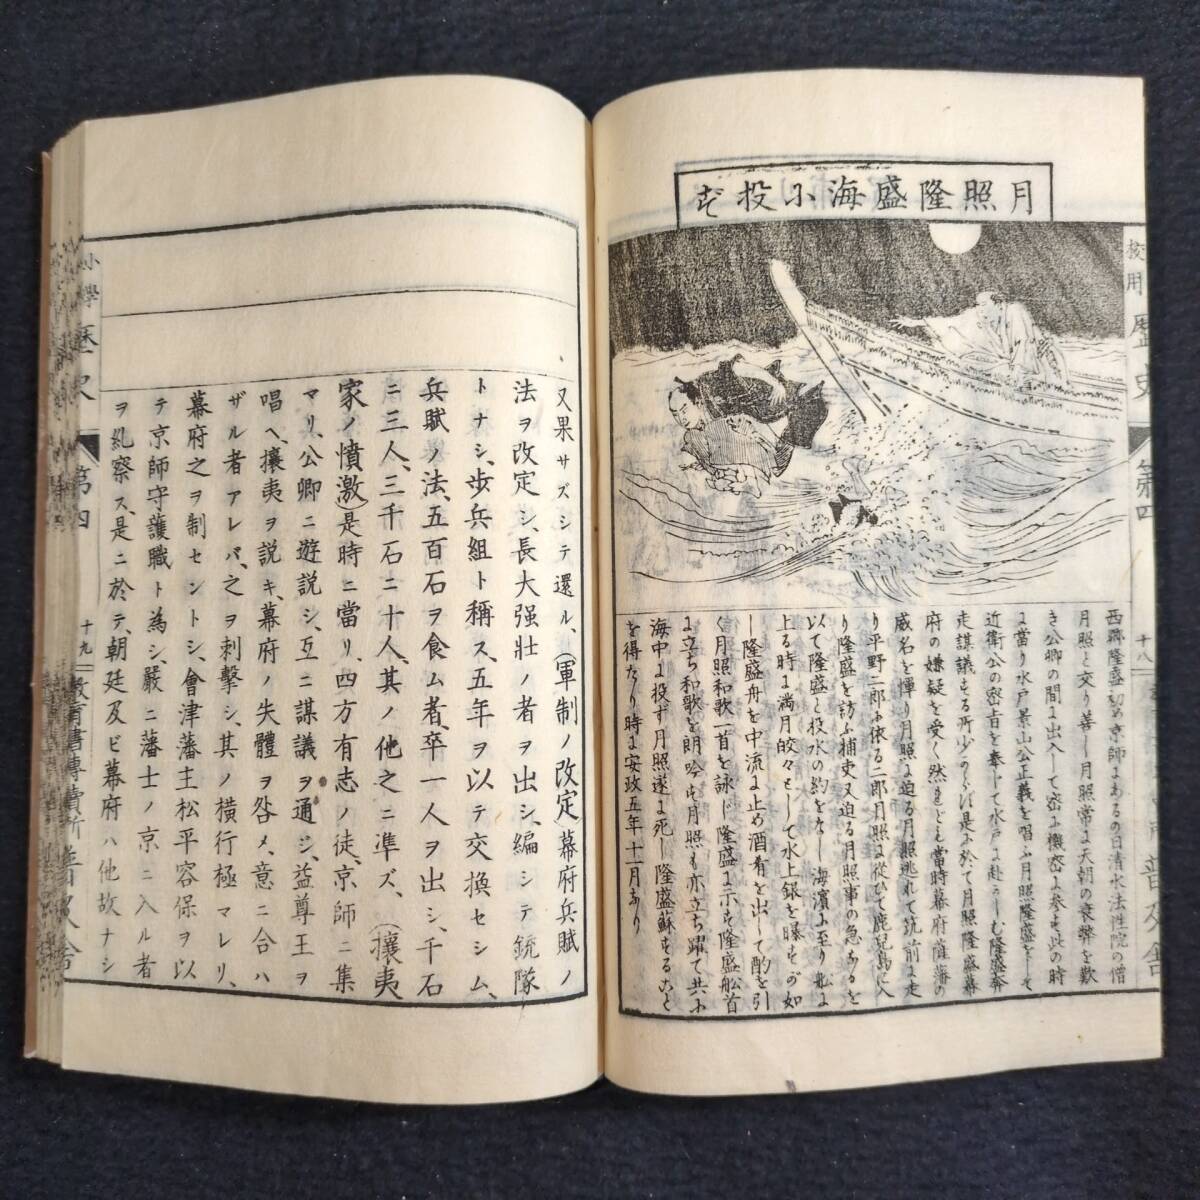 月照隆盛海ふ投ず
西郷隆盛初め京師にあるの日清水法性院の僧
月照と交り善し月照常に天朝の衰弊を歎
き公卿の間に出入して密に機密に参す此の時
に當り水戸景山公正義を唱ふ月照隆盛をして
近衛公の密旨を奉して水戸に赴かしむ隆盛奔
走謀議する所少からず是に於て月照隆盛幕
府の嫌疑を受く然れども當時幕府薩藩の
威名を憚り月照に迫る月照逃れて筑前に走
り平野二郎に依る二郎月照に從ひて鹿兒島に入
り隆盛を訪ふ捕吏又迫る月照事の急なるを
以て隆盛と投水の約をなし海濱に至り船に
上る時に満月皎々として水上銀を曝すが如
し隆盛舟を中流に止め酒肴を出して酌を引
く月照和歌一首を詠じ隆盛に示す隆盛舩首
に立ち和歌を朗吟す月照も亦立ち躍て共に
海中に投ず月照遂に死し隆盛蘇するこ
とを得たり時に安政五年十一月なり
校用歴史
第四
十八
普及舎
又果サズシテ還ル、(軍制ノ改定)幕府兵賦ノ
法ヲ改定シ、長大强壯ノ者ヲ出シ、編シテ銃隊
トナシ、歩兵組ト稱ス、五年ヲ以テ交換セシム、
兵賦ノ法、五百石ヲ食ム者、卒一人ヲ出シ、千石
ニ三人、三千石ニ十人、其ノ他之ニ準ズ、(攘夷
家ノ憤激)是時ニ當リ、四方有志ノ徒、京師ニ集
マリ、公卿ニ遊説シ、互ニ謀議ヲ通ジ、益尊王ヲ
唱ヘ、攘夷ヲ説キ、幕府ノ失體ヲ咎メ、意ニ合ハ
ザル者アレバ、之ヲ刺擊シ、其ノ横行極マレリ、
幕府之ヲ制セントシ、會津藩主松平容保ヲ以
テ京師守護職ト為シ、嚴ニ藩士ノ京ニ入ル者
ヲ糺察ス、是ニ於テ、朝廷及ビ幕府ハ他故ナシ
小學歴史
第四
十九
教育書專賣所
普及舎